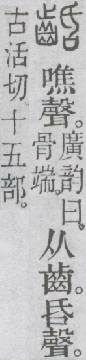 噍聲。廣韵曰。骨耑。从齒。昏聲。
古活切十五部。